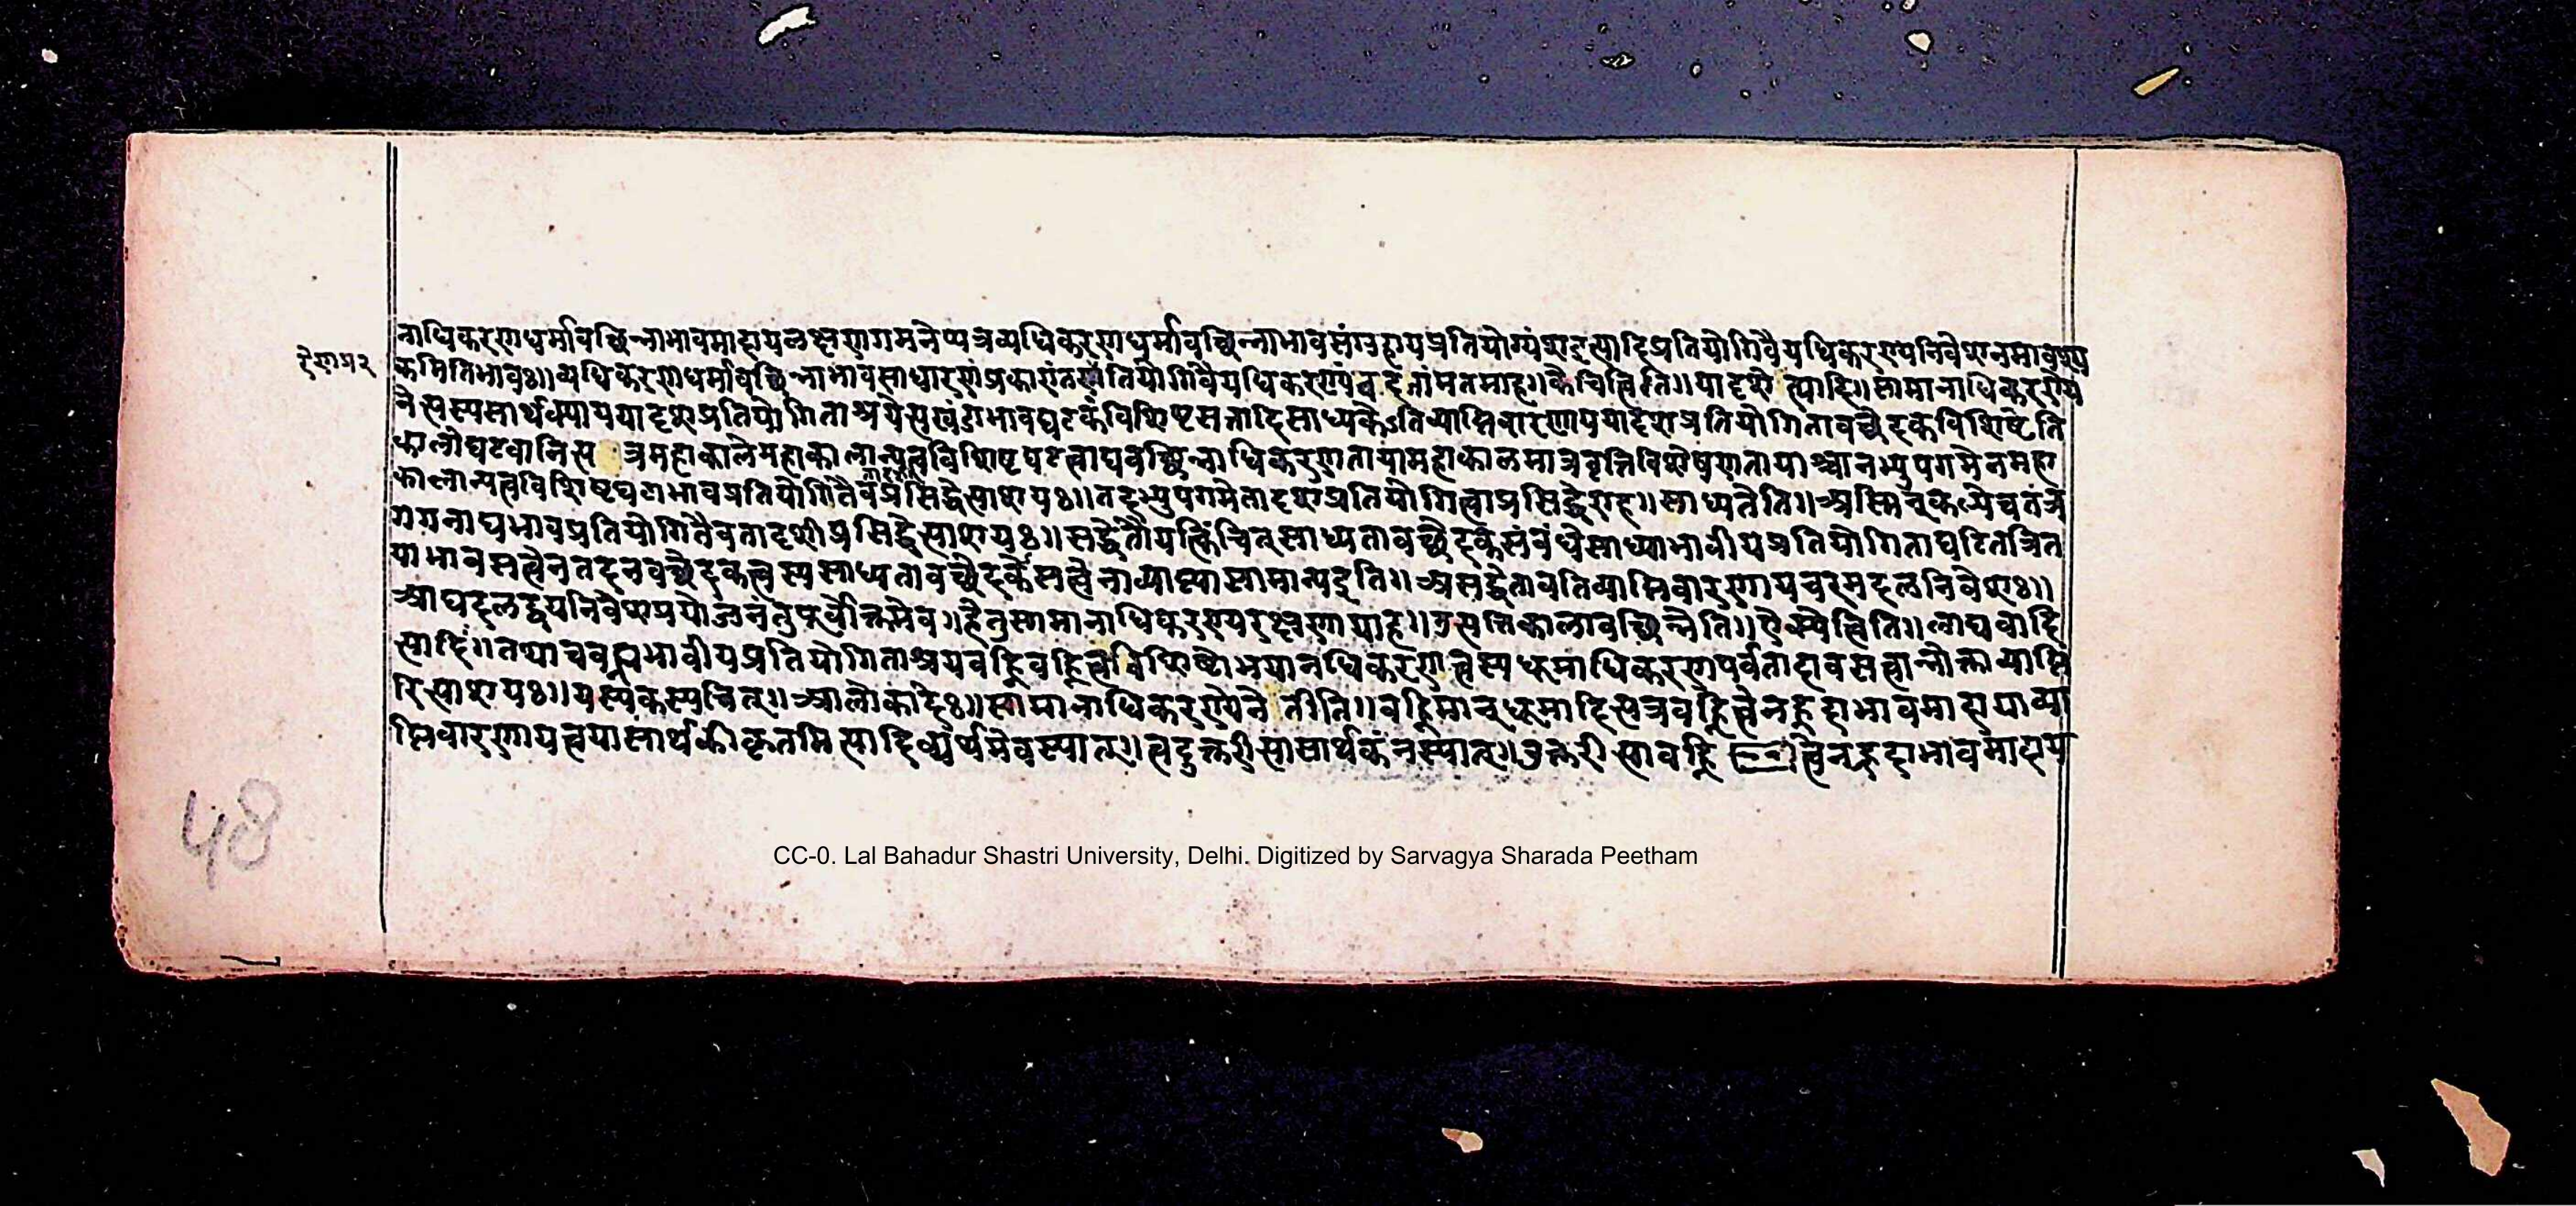 नाधिकरणधर्मावच्छिन्नाभावमादायलक्षणगमनेप्यत्रव्यधिकरणधर्मावच्छिन्नाभावसंग्रहायप्रतियोग्यंशइत्यादिप्रतियोगिवैयधिकरण्यनिवेशनमावश्य
रेणप्र२
कमितिभावः॥व्यधिकरणधर्मावच्छिन्नाभावसाधारणंप्रकारांतरप्रतियोगिवैयधिकरण्यंवदतांमतमाह॥कैचित्त्विति॥यादृशे त्यादि॥सामानाधिकरण्ये
नेत्यस्यसार्थक्याययादृशप्रतियोगिताश्रयेत्यखंडाभावघटकंविशिष्टसत्तादिसाध्यकेऽतिव्याप्तिवारणाययादृशप्रतियोगितावच्छेदकविशिष्टेति
कालोघटवानित्य त्रमहाकालेमहाकालान्यत्वविशिष्टघटत्वाद्यवच्छिन्नाधिकरणतायामहाकालमात्रवृत्तिविशेषणतायाश्चानभ्युपगमेनमहा
कालान्यत्वविशिष्टघटाभावप्रतियोगितैवप्रसिद्धेत्याशयः॥तदभ्युपगमेतादृशप्रतियोगित्वाप्रसिद्धेराह॥साध्यतेति॥अस्मिन्कल्पेचतत्र
गगनाद्यभावप्रतियोगितैवतादृशीप्रसिद्धेत्याशयः॥सद्धेतौयत्किंचित्साध्यतावच्छेदकसंबंधेसाध्याभावीयप्रतियोगिताघटितत्रित
याभावसत्वेनतदनवच्छेदकत्वस्यसाध्यतावच्छेदकेसत्वेनाव्याप्त्यासामान्यइति॥असद्धेतावतिव्याप्तिवारणायचरमदलनिवेशः॥
आद्यदलद्वयनिवेशप्रयोजनंतुपूर्वोक्तमेव॥हेतुसामानाधिकरण्यरक्षणायाह॥उत्पत्तिकालावच्छिन्नेति॥ऐक्येत्विति॥लाघवादि
त्यादिः॥तथाचवह्न्यभावीयप्रतियोगिताश्रयवह्निवह्नित्वविशिष्टोभयानधिकरणत्वस्यधूमाधिकरणपर्वतादावसत्वान्नोक्ताव्याप्ति
रित्याशयः॥यस्यकस्यचित्॥आलोकादेः॥सामानाधिकरण्येने तीति॥वह्निमान्धूमादित्यत्रवह्नित्वेनह्रदाभावमादायाव्या
प्तिवारणायत्वयासार्थकीकृतमित्यादिव्यर्थमेवस्यात्॥त्वदुक्तरीत्यासार्थकंनस्यात्॥उक्तरीत्यावह्नि त्वेनह्रदाभावमादाय
48
CC-0. Lal Bahadur Shastri University, Delhi. Digitized by Sarvagya Sharada Peetham